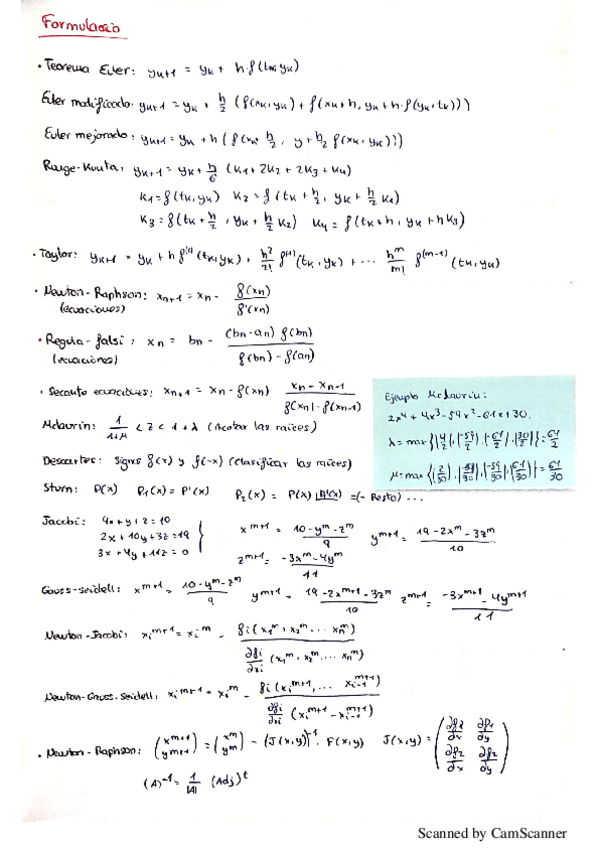 Formulario
· Teorema Euler: yk+1 = yk + h·f(tk,yk)
Euler modificado: yk+1 = yk + h/2 (f(xk,yk) + f(xk+h, yk+h·f(yk,tk)))
Euler mejorado: yk+1 = yk + h(f(xk+ h/2, y + h/2 f(xk,yk)))
Runge-Kutta: yk+1 = yk + h/6 (k1 + 2k2 + 2k3 + k4)
k1 = f(tk,yk) k2 = f(tk + h/2, yk + h/2 k1)
k3 = f(tk + h/2, yk + h/2 k2) k4 = f(tk+h, yk + hk3)
· Taylor: yk+1 = yk + h f (tk,yk) + h²/2! f (tk,yk) + ... h^m/m! f^(m-1) (tk,yk)
· Newton-Raphson: xn+1 = xn - f(xn)/f'(xn)
(ecuaciones)
· Regula-falsi: xn = bn - (bn-an) f(bn) / f(bn) - f(an)
(ecuaciones)
· Secante ecuaciones: xn+1 = xn - f(xn) xn - xn-1 / f(xn) - f(xn-1)
Ejemplo Mclaurin:
2x⁴ + 4x³ - 54x² - 61x + 30.
λ = max {|4/2|, |-54/2|, |-61/2|, |30/2|} = 61/2
μ = max {|2/30|, |4/30|, |-54/30|, |61/30|} = 61/30
Mclaurin: 1/1+μ < Z < 1+λ (Acotar las raíces)
Descartes: Signo f(x) y f(-x) (Clasificar las raíces)
Sturm: P(x) P1(x) = P'(x) P2(x) = P(x) |P'(x) = (- Resto) ...
Jacobi: 4x + y + z = 10
2x + 10y + 3z = 19
3x + 4y + 11z = 0
x^m+1 = 10 - y^m - z^m / 9 y^m+1 = 19 - 2x^m - 3z^m / 10
z^m+1 = -3x^m - 4y^m / 11
Gauss-seidell: x^m+1 = 10 - y^m - z^m / 9 y^m+1 = 19 - 2x^m+1 - 3z^m / 10 z^m+1 = -3x^m+1 - 4y^m+1 / 11
Newton-Jacobi: xi^m+1 = xi^m - fi(x1^m, x2^m ... xn^m) / ∂fi/∂xi (x1^m, x2^m, ... xn^m)
Newton-Gauss-Seidell: xi^m+1 = xi^m - fi(xi^m+1, ... xi-1^m+1) / ∂fi/∂xi (xi^m+1 - xi-1^m+1)
· Newton-Raphson: (x^m+1 y^m+1) = (x^m y^m) - (J(x,y))^-1 · F(x,y) J(x,y) = (∂f1/∂x ∂f1/∂y ∂f2/∂x ∂f2/∂y)
(A)^-1 = 1/|A| (Adj)^t
Scanned by CamScanner